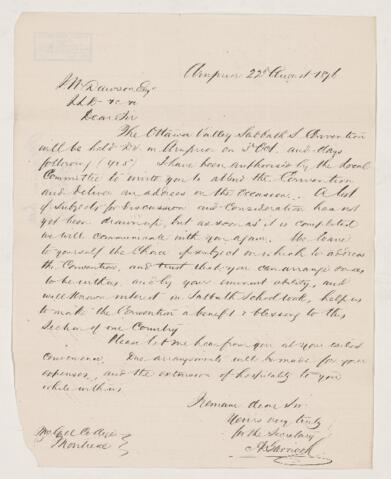 Arnprior 22d August 1876
J.W. Dawson Esq
LLD &c &c
Dear Sir
The Ottawa Valley Sabbath S. Convention
will be held D.V. in Arnprior on 3d Oct. and days
following (4 & 5) I have been authorised by the Local
Committee to invite you to attend the Convention
and deliver an address on the occasion. A list
of subjects for discussion and consideration has not
yet been drawn up, but as soon as it is completed
we will communicate with you again. We leave
to yourself the choice of subject on which to address
the Convention, and trust that you can arrange
to be with us, and by your eminent ability, and
well known interest in Sabbath School work, help us
to make the Convention a benefit & blessing to this
Section of our Country
Please let me hear from you at your earliest
convenience. Due arrangements will be made for your
expenses, and the extension of hospitality to you
while with us
I remain dear Sir
Yours very truly
for the Secretary
McGill College
Montreal